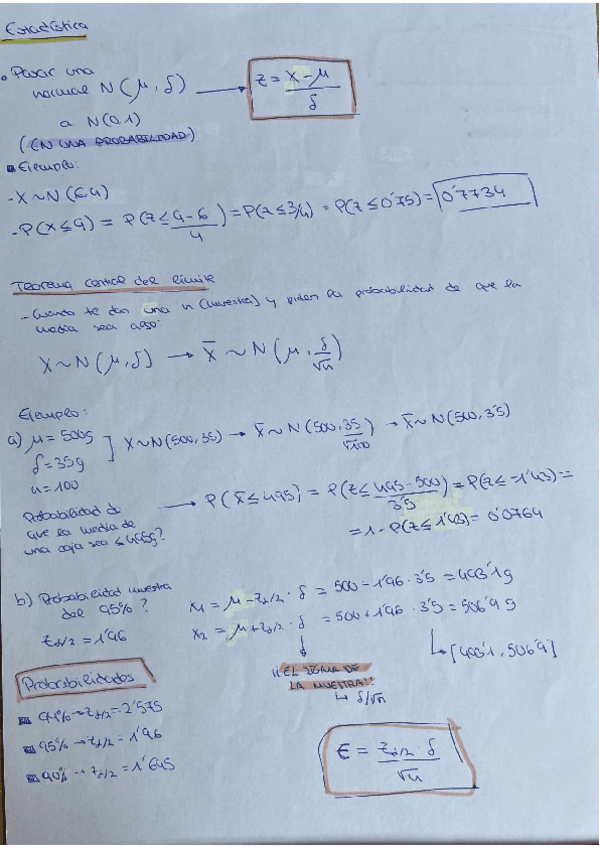 Estadística
• Pasar una
normal N(μ, δ) → z = x - μ / δ
a N(0,1)
(EN UNA PROBABILIDAD)
Ejemplo:
- X ~ N(6,4)
- P(x ≤ 9) = P(z ≤ 9-6 / 4) = P(z ≤ 3/4) = P(z ≤ 0'75) = 0'7734
Teorema central del límite
- Cuando te dan una n (muestra) y piden la probabilidad de que la
media sea algo:
X ~ N(μ, δ) → X̄ ~ N(μ, δ/√n)
Ejemplo:
a) μ = 500g ] X ~ N(500, 35) → X̄ ~ N(500, 35/√100) → X̄ ~ N(500, 3'5)
δ = 35g
n = 100
Probabilidad de
que la media de
una caja sea ≤ 495g?
→ P(X̄ ≤ 495) = P(z ≤ 495-500 / 3'5) = P(z ≤ -1'43) =
= 1 - P(z ≤ 1'43) = 0'0764
b) Probabilidad muestra
del 95%?
z α/2 = 1'96
x₁ = μ - z α/2 · δ = 500 - 1'96 · 3'5 = 493'1g
x₂ = μ + z α/2 · δ = 500 + 1'96 · 3'5 = 506'9g
↳ [493'1, 506'9]
¡¡EL SIGMA DE
LA MUESTRA!!
↳ δ/√n
Probabilidades
99% → z α/2 = 2'575
95% → z α/2 = 1'96
90% → z α/2 = 1'645
E = z α/2 · δ / √n